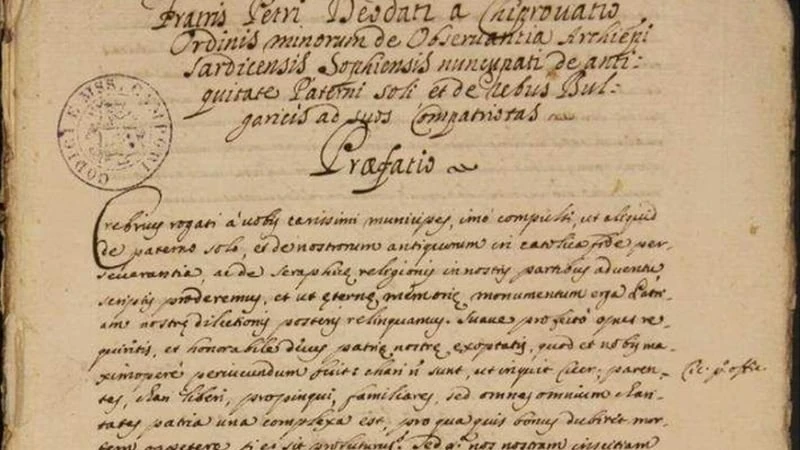 Fratris Petri Deodati a Chiprovatio
Ordinis minorum de Observantia Archiepi
Sardicensis Sophiensis nuncupati de anti-
quitate Paterni soli et de rebus Bul-
garicis ad suos Compatriotas
Præfatio
CODICI E MSS. CAMPORI
Crebrius rogati à vobis carissimi municipes, imò compulsi, ut aliquid
de paterno solo, et de nostrorum antiquorum in catolica fide per-
severantia, ac de seraphicę religionis in nostris partibus adventu
scriptis proderemus, et ut ęternę memorię monumentum erga Patri-
am nostrę dilectionis posteris relinquamus. Suave profecto opus re-
quiritis, et honorabile decus patrię nostrę exoptatis, quod et nobis ma-
ximoperè periucundum fuit: chari n sunt, ut inquit Cicer: paren-
tes, chari liberi, propinqui, familiares, sed omnes omnium chari-
tates patria una complexa est, pro qua quis bonus dubitet mor-
tem oppetere, si ei sit profuturus? Sed q nos nostram inscitiam
Cic: p offic.